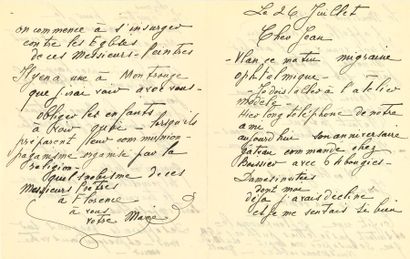 Le 26 Juillet
Cher Jean
- Vlan, ce matin migraine
ophtalmique -
- Je dois aller à l'atelier
modèle -
Hier long téléphone de notre
ami
aujourd'hui son anniversaire
gâteau commandé chez
Boissier avec bougies -
dont moi
déjà j'avais décliné
et je me sentais si bien
on commence à s'insurger
contre les Eglises
de ces Messieurs - Peintres
Il y en a une à Montrouge
que j'irai voir avec vous -
obliger les enfants
à voir quoi - lorsqu'ils
préparent leur communion -
paganisme organisé par la
religion -
quel snobisme de ces
Messieurs Prêtres
à Florence
à vous
votre Marie